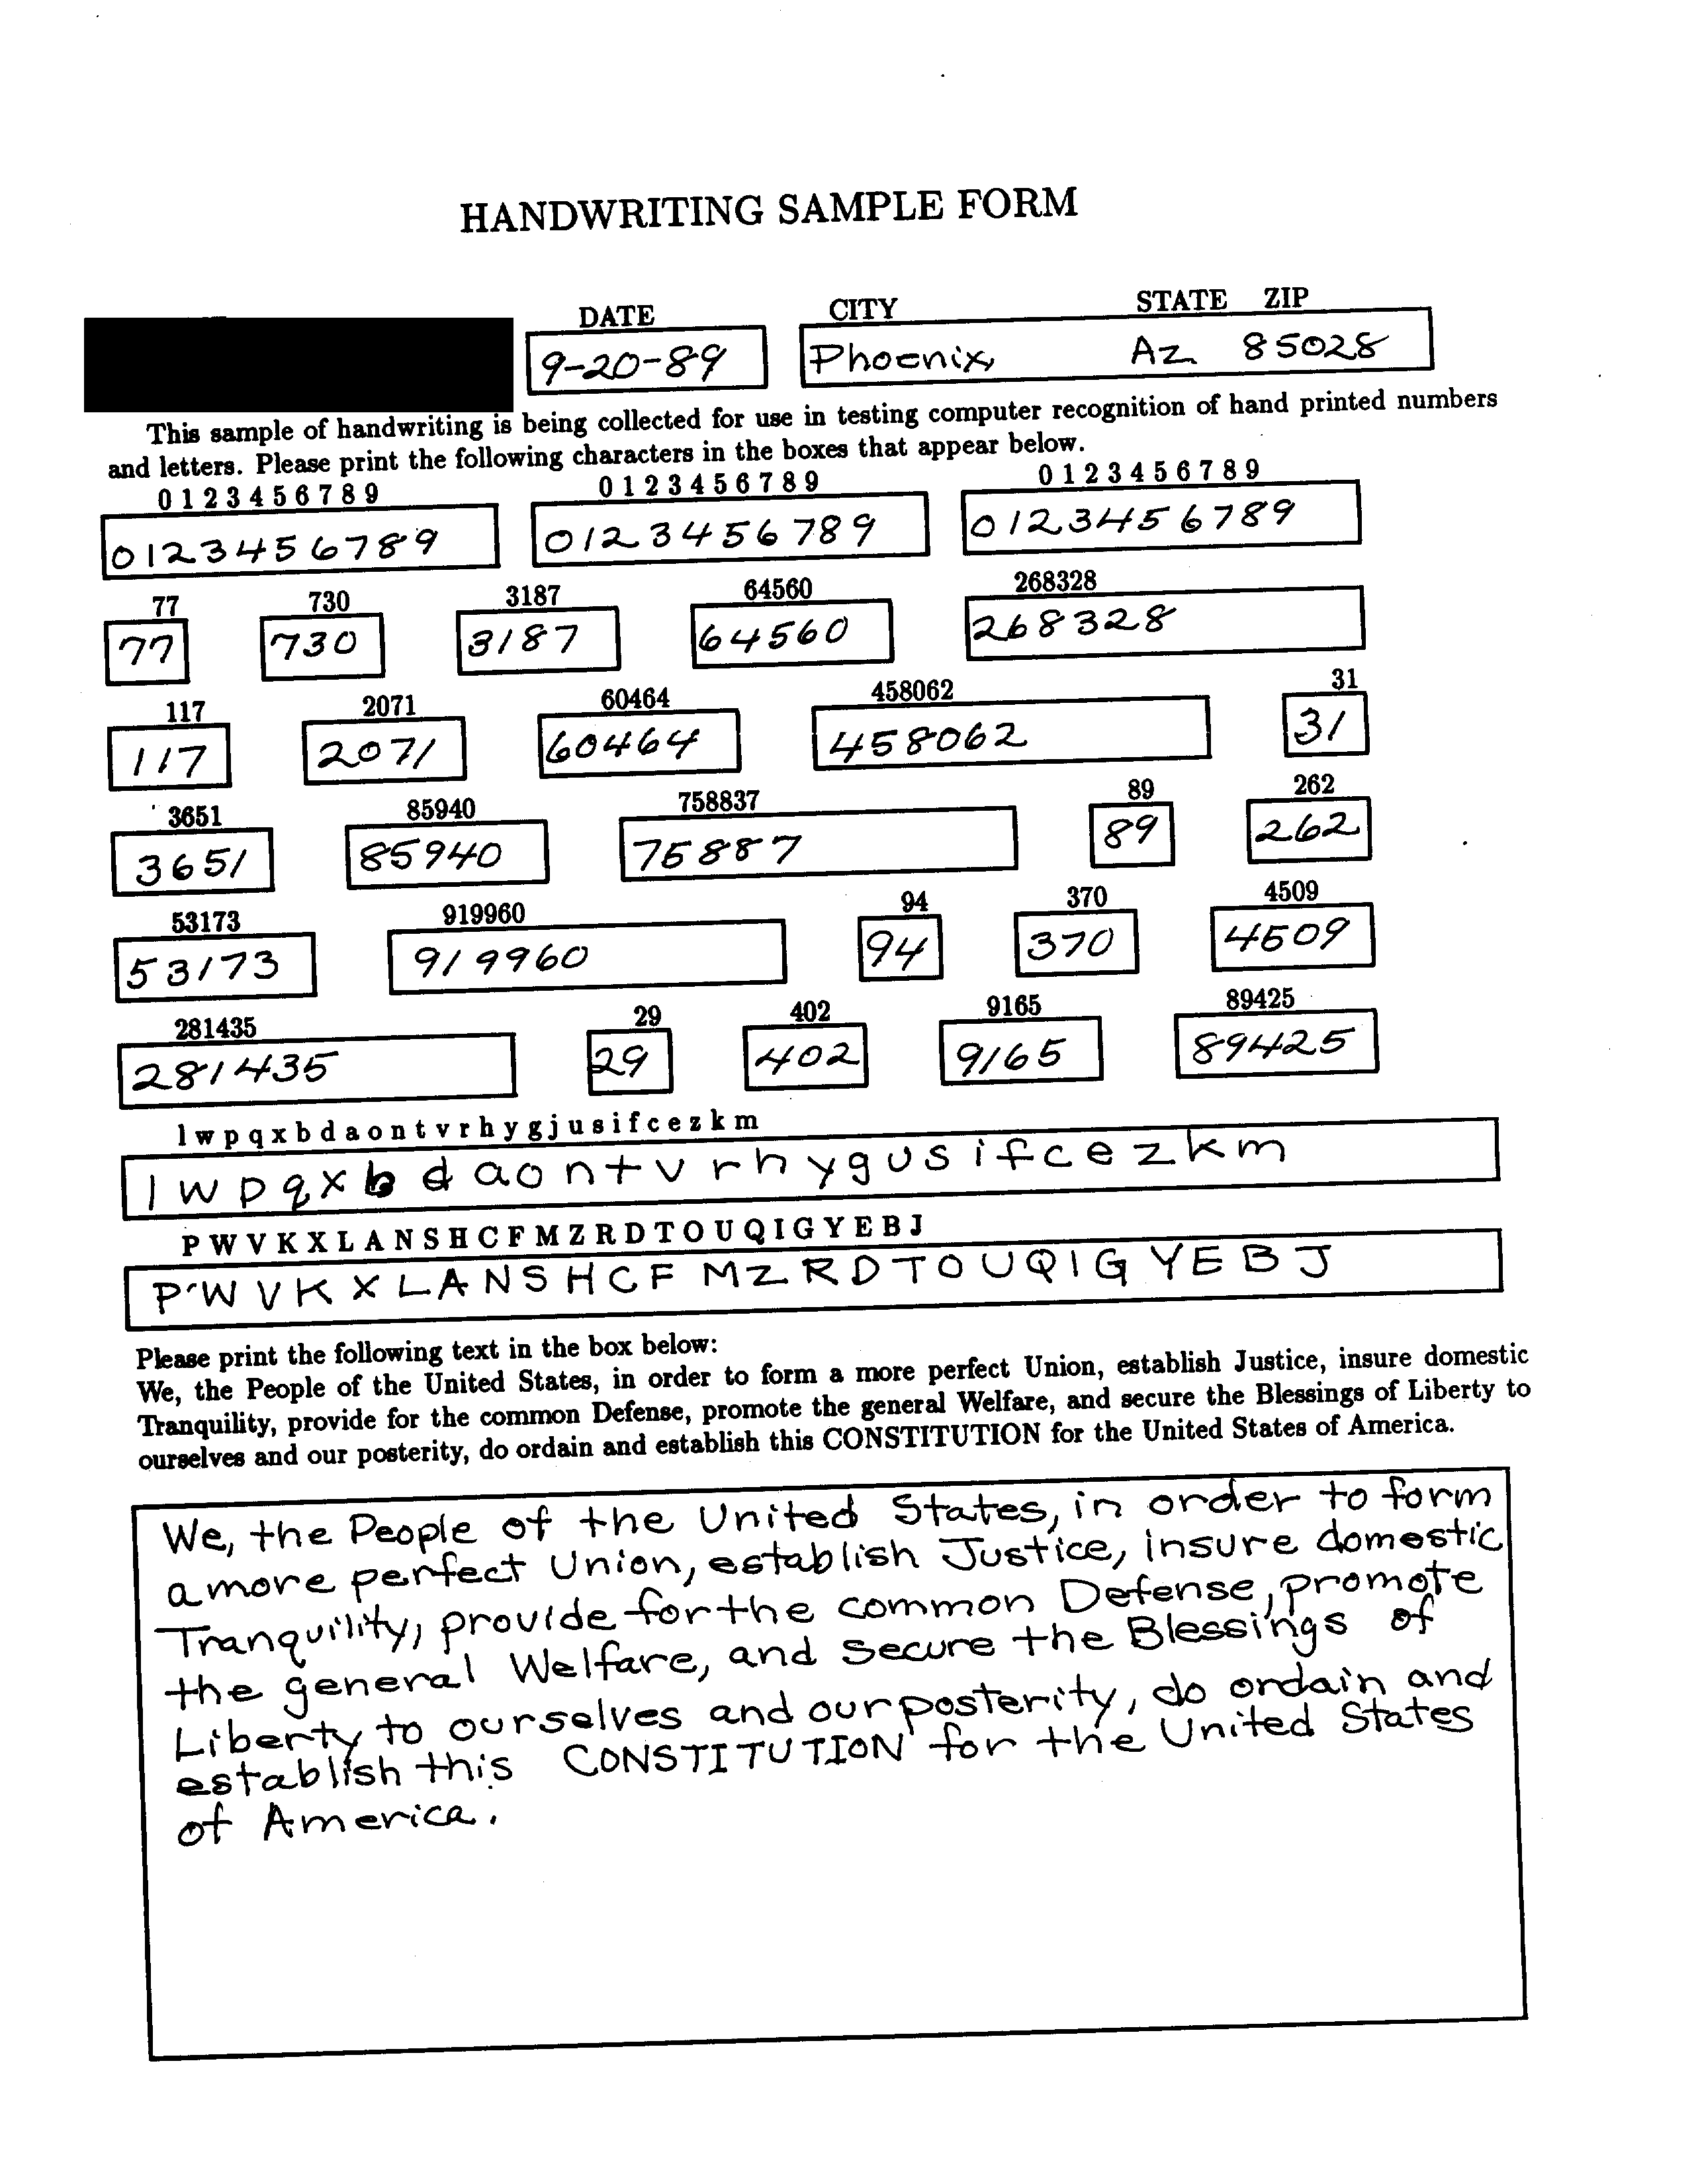 HANDWRITING SAMPLE FORM
DATE CITY STATE ZIP
9-20-89 Phoenix, Az 85028
This sample of handwriting is being collected for use in testing computer recognition of hand printed numbers
and letters. Please print the following characters in the boxes that appear below.
0 1 2 3 4 5 6 7 8 9 0 1 2 3 4 5 6 7 8 9 0 1 2 3 4 5 6 7 8 9
0123456789 0123456789 0123456789
77 730 3187 64560 268328
77 730 3187 64560 268328
117 2071 60464 458062 31
117 2071 60464 458062 31
3651 85940 758837 89 262
3651 85940 75887 89 262
53173 919960 94 370 4509
53173 919960 94 370 4509
281435 29 402 9165 89425
281435 29 402 9165 89425
l w p q x b d a o n t v r h y g j u s i f c e z k m
l w p q x b d a o n t v r h y g u s i f c e z k m
P W V K X L A N S H C F M Z R D T O U Q I G Y E B J
P W V K X L A N S H C F M Z R D T O U Q I G Y E B J
Please print the following text in the box below:
We, the People of the United States, in order to form a more perfect Union, establish Justice, insure domestic
Tranquility, provide for the common Defense, promote the general Welfare, and secure the Blessings of Liberty to
ourselves and our posterity, do ordain and establish this CONSTITUTION for the United States of America.
We, the People of the United States, in order to form
a more perfect Union, establish Justice, insure domestic
Tranquility, provide for the common Defense, promote
the general Welfare, and secure the Blessings of
Liberty to ourselves and our posterity, do ordain and
establish this CONSTITUTION for the United States
of America.